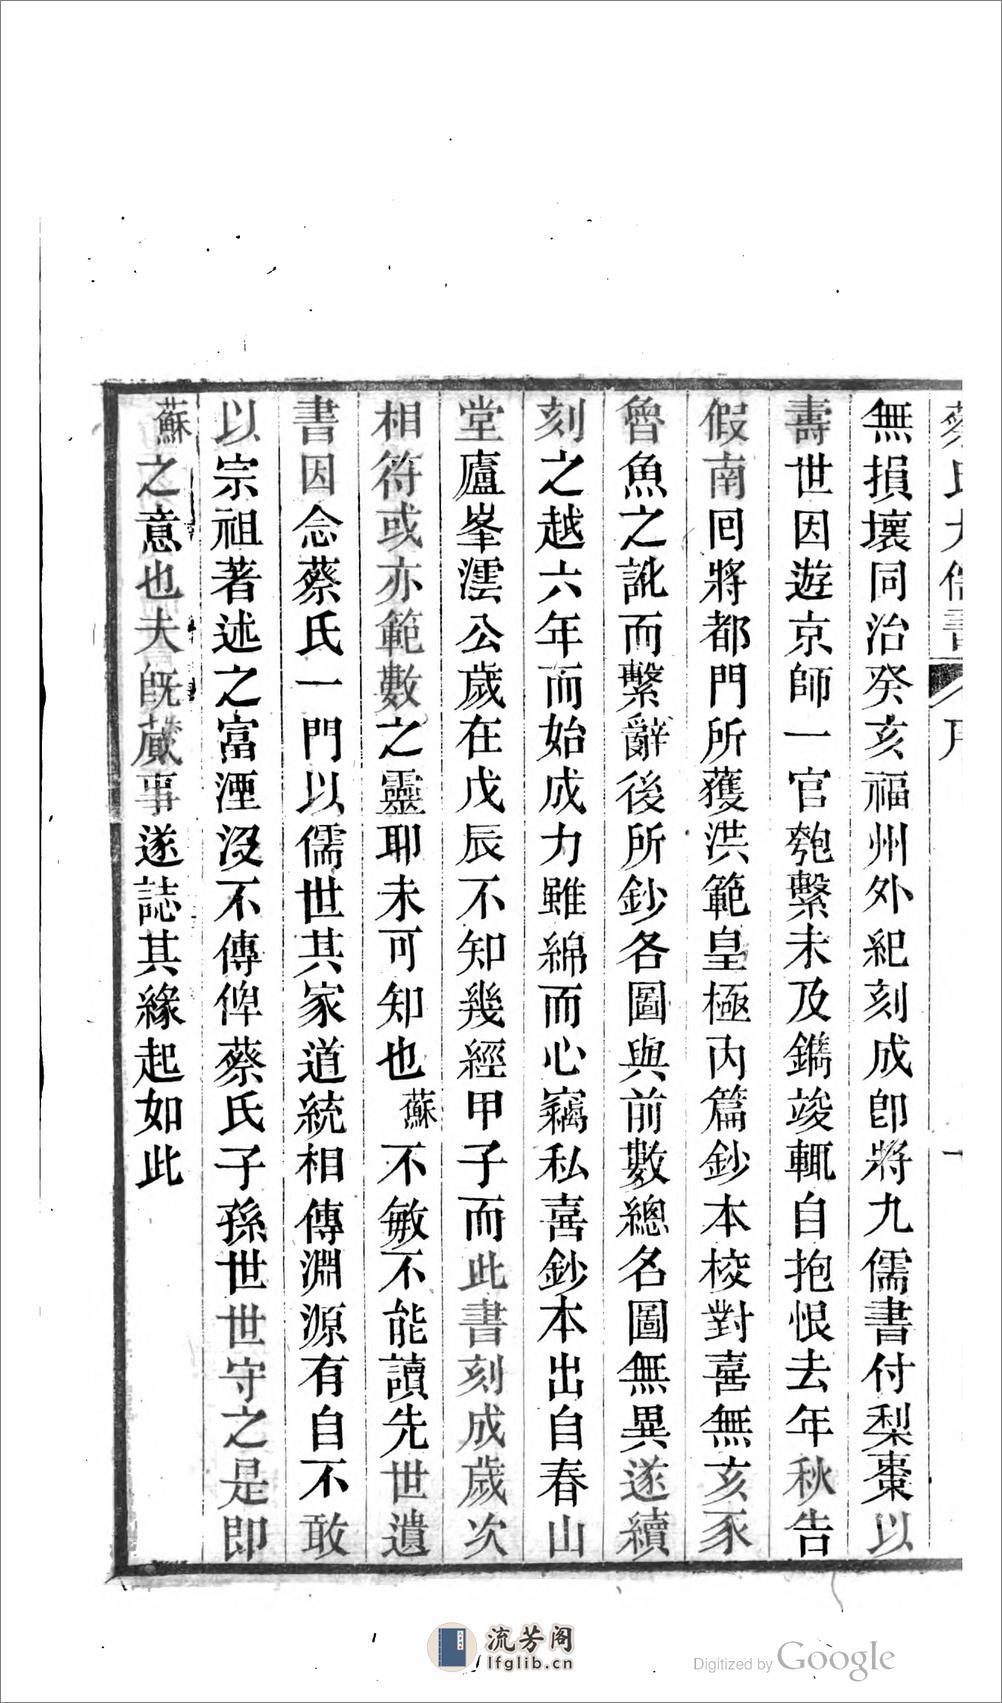 蔡氏九儒書 序 一
無損壞同治癸亥福州外紀刻成卽將九儒書付梨棗以
壽世因遊京師一官匏繫未及鐫竣輒自抱恨去年秋告
假南囘將都門所獲洪範皇極內篇鈔本校對喜無亥豕
魯魚之訛而繫辭後所鈔各圖與前數總名圖無異遂續
刻之越六年而始成力雖綿而心竊私喜鈔本出自春山
堂廬峯澐公歲在戊辰不知幾經甲子而此書刻成歲次
相符或亦範數之靈耶未可知也蘇不敏不能讀先世遺
書因念蔡氏一門以儒世其家道統相傳淵源有自不敢
以宗祖著述之富湮沒不傳俾蔡氏子孫世世守之是即
蘇之意也夫旣蕆事遂誌其緣起如此
流芳阁
lfglib.cn
Digitized by Google